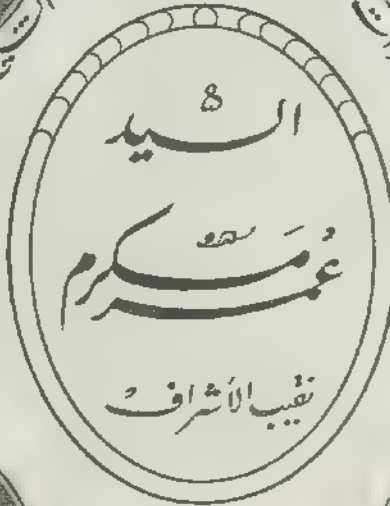 السيد
عُمَر مكرم
نقيب الأشراف